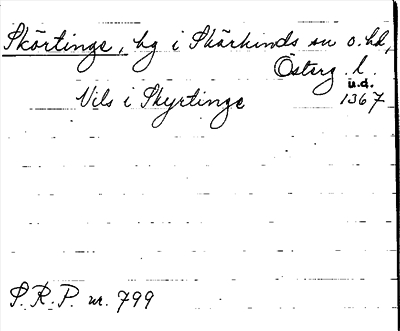 Skörtinge, by i Skärkinds sn o. hd,
Österg. l.
u.a.
Vils i Skyrtinge 1367
S.R.P. nr. 799